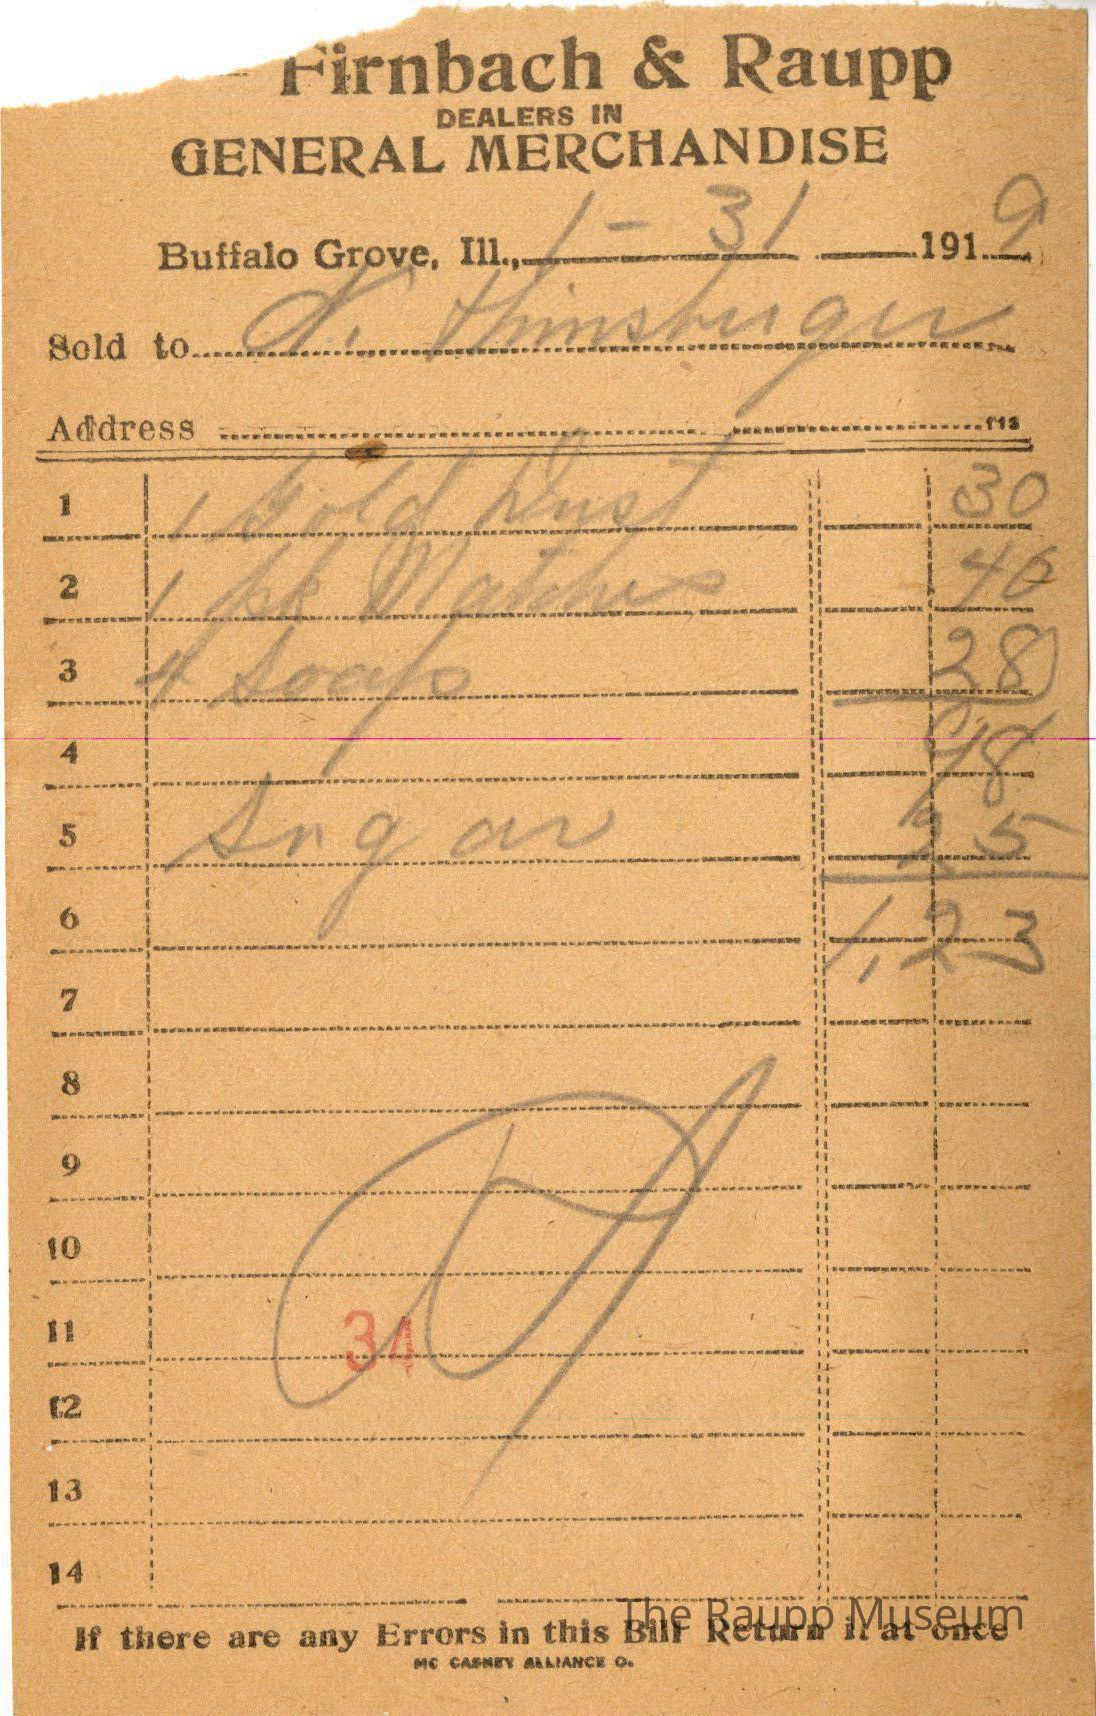 Firnbach & Raupp
DEALERS IN
GENERAL MERCHANDISE
Buffalo Grove, Ill., 1-31 1919
Sold to
Address
1 1 Gold Dust 30
2 1 pk Matches 40
3 4 Soaps 28
4 98
5 Sugar 25
6 1,23
7
8
9
10
11 34
12
13
14
The Raupp Museum
If there are any Errors in this Bill Return it at once
MC CASKEY ALLIANCE O.